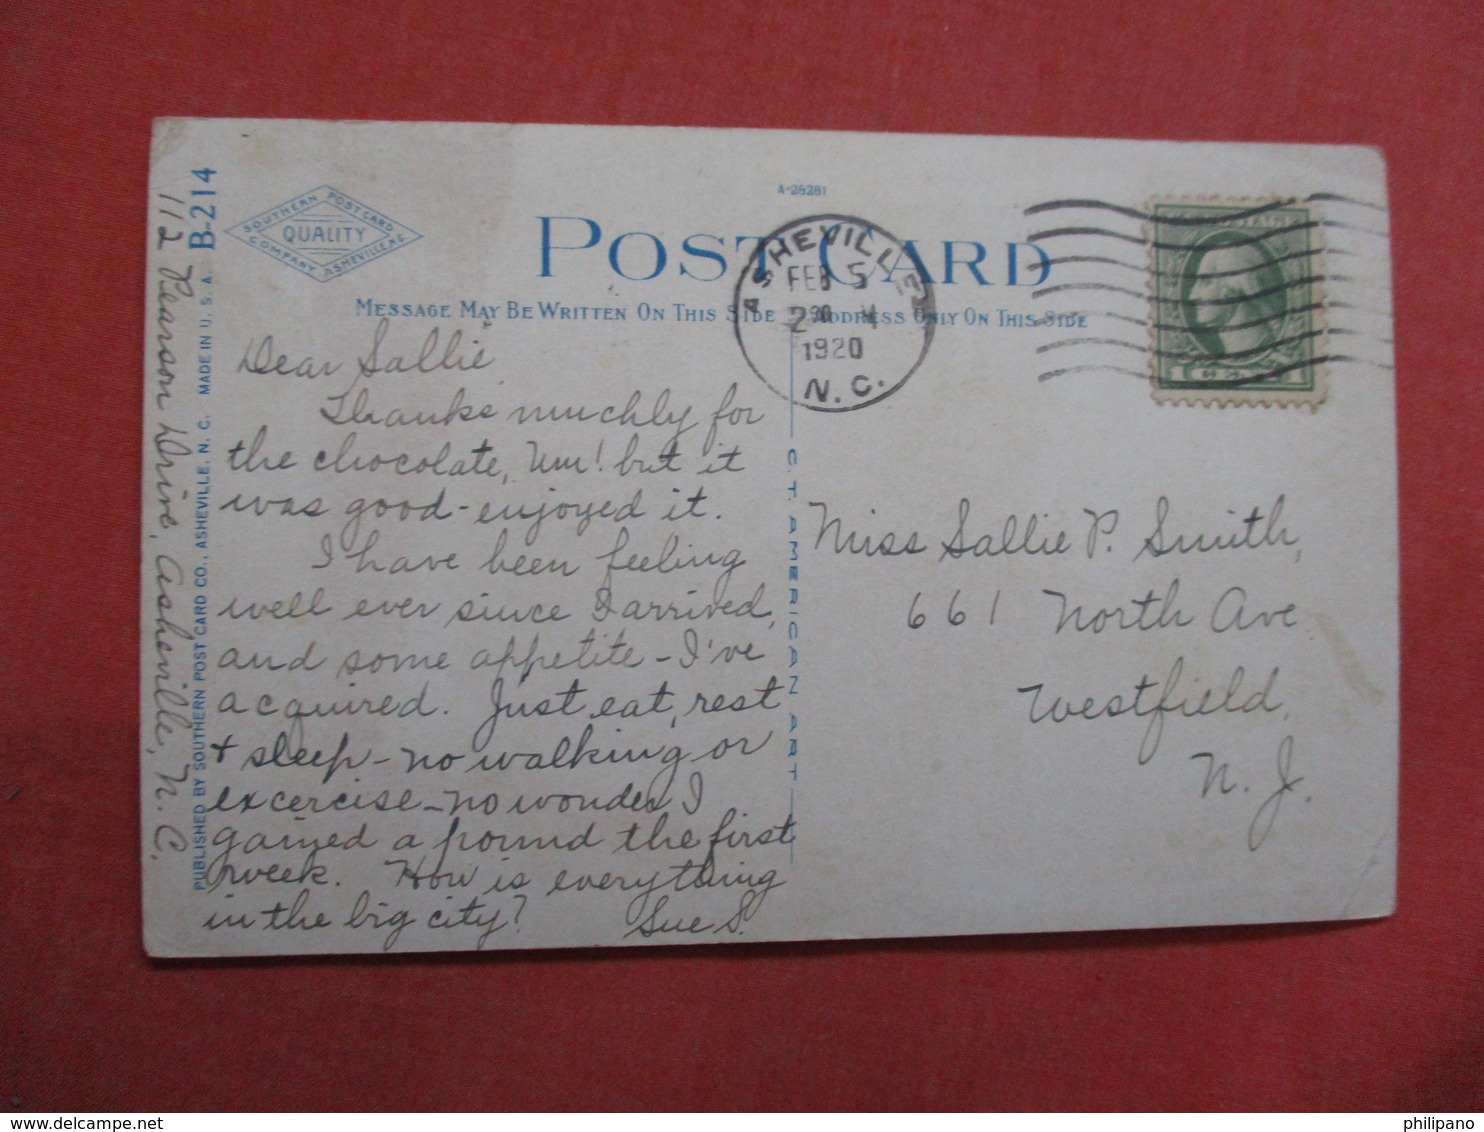 B-214
112 Pearson Drive, Asheville, N. C.
MADE IN U. S. A.
PUBLISHED BY SOUTHERN POST CARD CO., ASHEVILLE, N. C.
SOUTHERN POST CARD
QUALITY
COMPANY ASHEVILLE, N.C.
A-28281
POST CARD
MESSAGE MAY BE WRITTEN ON THIS SIDE
ADDRESS ONLY ON THIS SIDE
ASHEVILLE
FEB 5
2 30
1920
N. C.
1 1
Dear Sallie
Thanks muchly for
the chocolate, Um! but it
was good - enjoyed it.
I have been feeling
well ever since I arrived,
and some appetite - I've
acquired. Just eat, rest
+ sleep - no walking or
excercise - no wonder I
gained a pound the first
week. How is everything
in the big city? Sue S.
C. T. AMERICAN ART
Miss Sallie P. Smith,
661 North Ave
Westfield,
N. J.
philipano